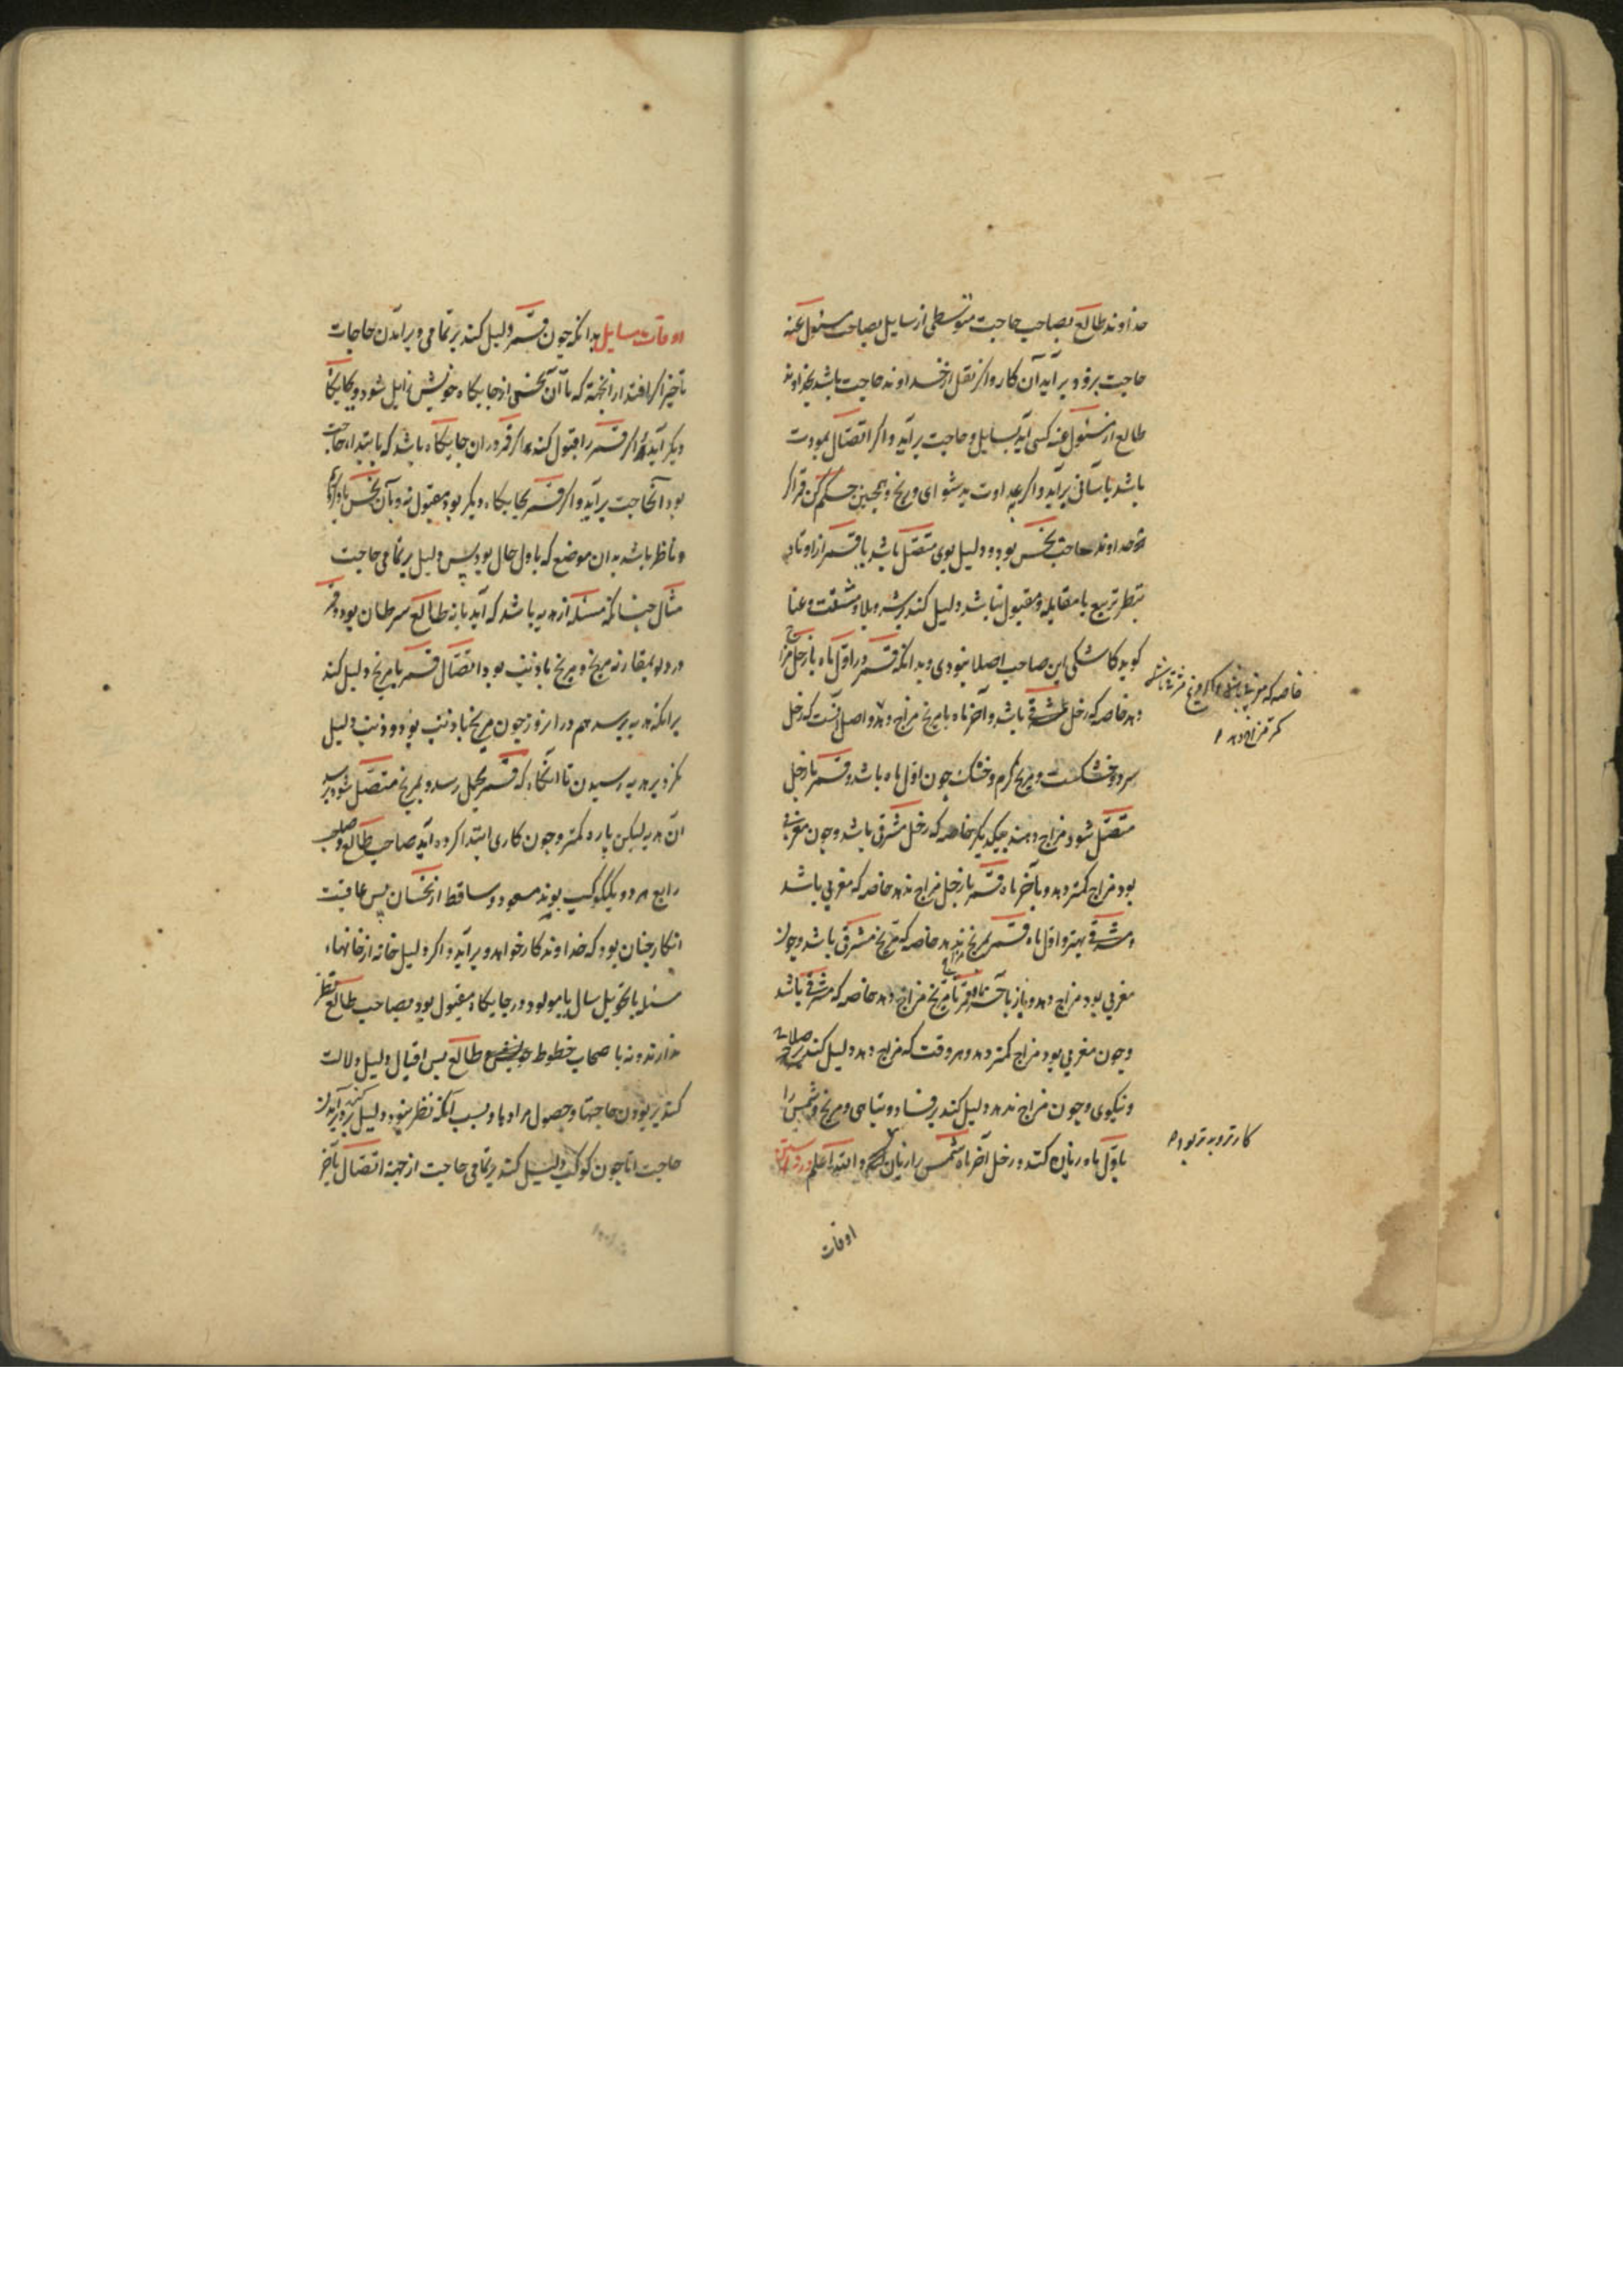 خداوند طالع بصاحب حاجت متوسطی از سایل بصاحب مسئول عنه
حاجت برود بر آید آن کار و اکر نقل از خداوند حاجت باشد بخداوند
طالع از مسئول عنه کسی آید بسایل و حاجت بر آید و اکر اتصال بمودت
باشد بآسانی بر آید و اکر بعداوت بدشواری و رنج و همچنین حکم کن قمر اکر
خداوند صاحب نحس بود و دلیل بوی متصل باشد یا قمر از اوتاد
بنظر تربیع یا مقابله و مقبول نباشد دلیل کند بر شر و بلا و مشقت و عنا
کوید کاشکی این صاحب اصلا نبودی و بدانکه قمر در اول ماه با زحل مزاج
دهد خاصه که زحل مشرقی باشد و آخر ماه با مریخ مزاج دهد و اصل آنست که زحل
خاصه که مغربی باشد
کمتر مزاج دهد
سرد و خشکست و مریخ کرم و خشک چون اول ماه باشد و قمر با زحل
متصل شود مزاج دهند بیکدیکر خاصه که زحل مشرقی باشد و چون مغربی
بود مزاج کمتر دهد و بآخر ماه قمر با زحل مزاج ندهد خاصه که مغربی باشد
و مشرقی بهتر و اول ماه قمر بمریخ مزاج ندهد خاصه که مریخ مشرقی باشد و چون
مغربی بود مزاج دهد و باز بآخر ماه قمر با مریخ مزاج دهد خاصه که مشرقی باشد
و چون مغربی بود مزاج کمتر دهد و هر وقت که مزاج دهد دلیل کند بر صلاح
و نیکوی و چون مزاج ندهد دلیل کند بر فساد و تباهی و مریخ شمس را
باول ماه زیان کند و زحل آخر ماه شمس را زیان کند و الله اعلم
کارتر و بدتر بود
اوقات
اوقات مسایل بدانکه چون قمر دلیل کند بر تمامی و بر آمدن حاجات
تأخیر اکر افتد از آنجهة که تا آن نحس از جایکاه خویش زایل شود و بجایکاه
دیکر آید و اکر قمر را قبول کند و اکر قمر در ان جایکاه باشد که بابتدا حاجت
بود آنحاجت بر آید و اکر قمر بجایکاه دیکر بود و مقبول بود بآن نحس
و ناظر باشد به ان موضع که باول حال بود پس دلیل بر تمامی حاجت
مثال چنانکه مسئله از هدیه باشد که آید یا نه طالع سرطان بود و قمر
در دلو بمقارنه مریخ و مریخ با ذنب بود اتصال قمر با مریخ دلیل کند
بر انکه هدیه برسد هم در انروز چون مریخ با ذنب بود و ذنب دلیل
کرد بر هدیه رسیدن تا انکاه که قمر بحمل رسد و بمریخ متصل شود برسد
ان هدیه لیکن پاره کمتر و چون کاری ابتدا کرده آید صاحب طالع و صاحب
رابع هر دو یک کوکب بوند مسعود و ساقط از نحسان پس عاقبت
انکار چنان بود که خداوند کار خواهد و بر آید و اکر دلیل خانه از خانهاء
مسئله یا تحویل سال یا مولود در جایکاه مقبول بود و بصاحب طالع نظر
ندارند و نه باصحاب خطوط طالع پس اقبال دلیل و لالت
کند بر بودن حاجتها و حصول مرادها و بسبب آنکه نظر نبود دلیل کند بر دیر آمدن
حاجت اما چون کوکب دلیل کند بر تمامی حاجت از جهة اتصال بآخر